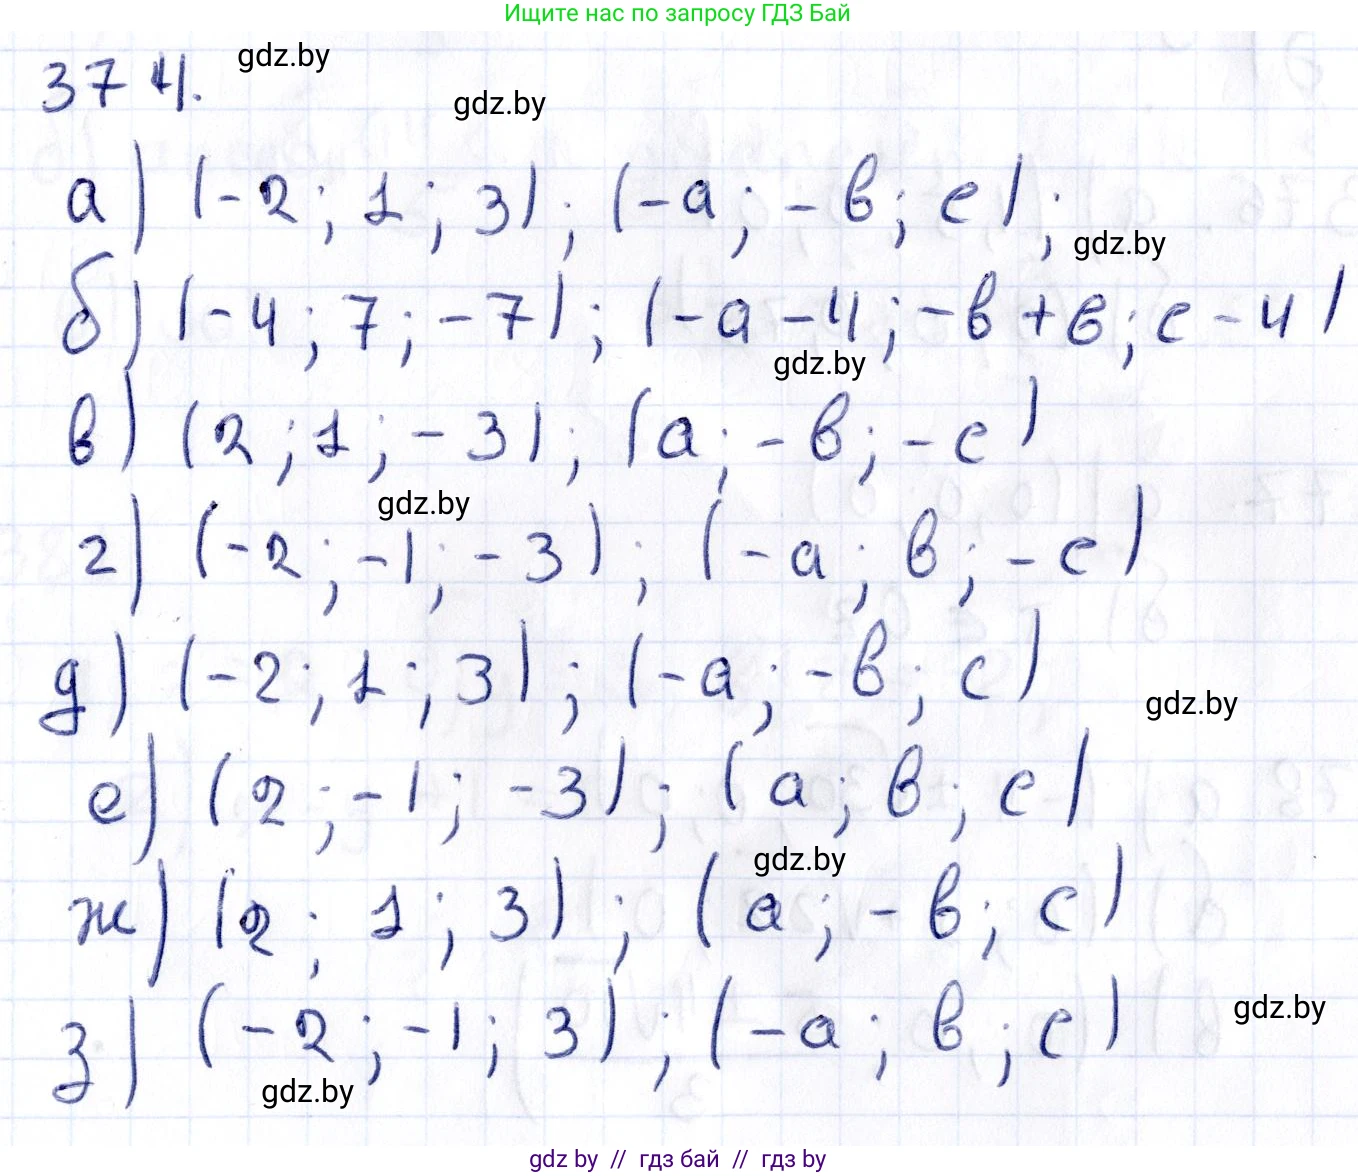 Ищите нас по запросу ГДЗ Бай
374. gdz.by
gdz.by
а) (-2; 1; 3); (-а; -в; с);
gdz.by
б) (-4; 7; -7); (-а-4; -в+6; с-4)
gdz.by
в) (2; 1; -3); (а; -в; -с)
gdz.by
г) (-2; -1; -3); (-а; в; -с)
д) (-2; 1; 3); (-а; -в; с)
gdz.by
е) (2; -1; -3); (а; в; с)
gdz.by
ж) (2; 1; 3); (а; -в; с)
gdz.by
з) (-2; -1; 3); (-а; в; с)
gdz.by
gdz by // гдз бай // гдз by